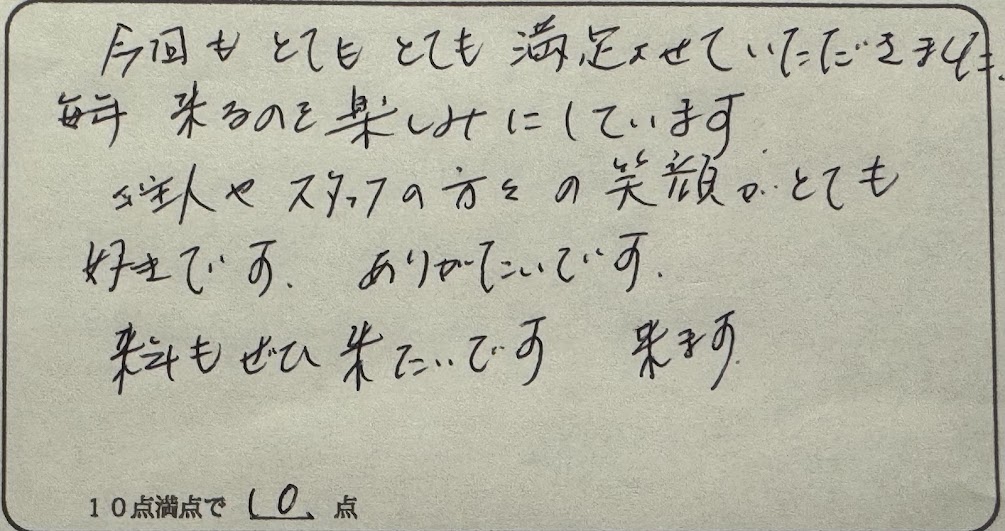 今回も とても とても 満足させていただきました。
毎年 来るのを楽しみにしています
ご主人や スタッフの方々の 笑顔が とても
好きです. ありがたいです.
来年も ぜひ 来たいです 来ます.
10点満点で 10 点